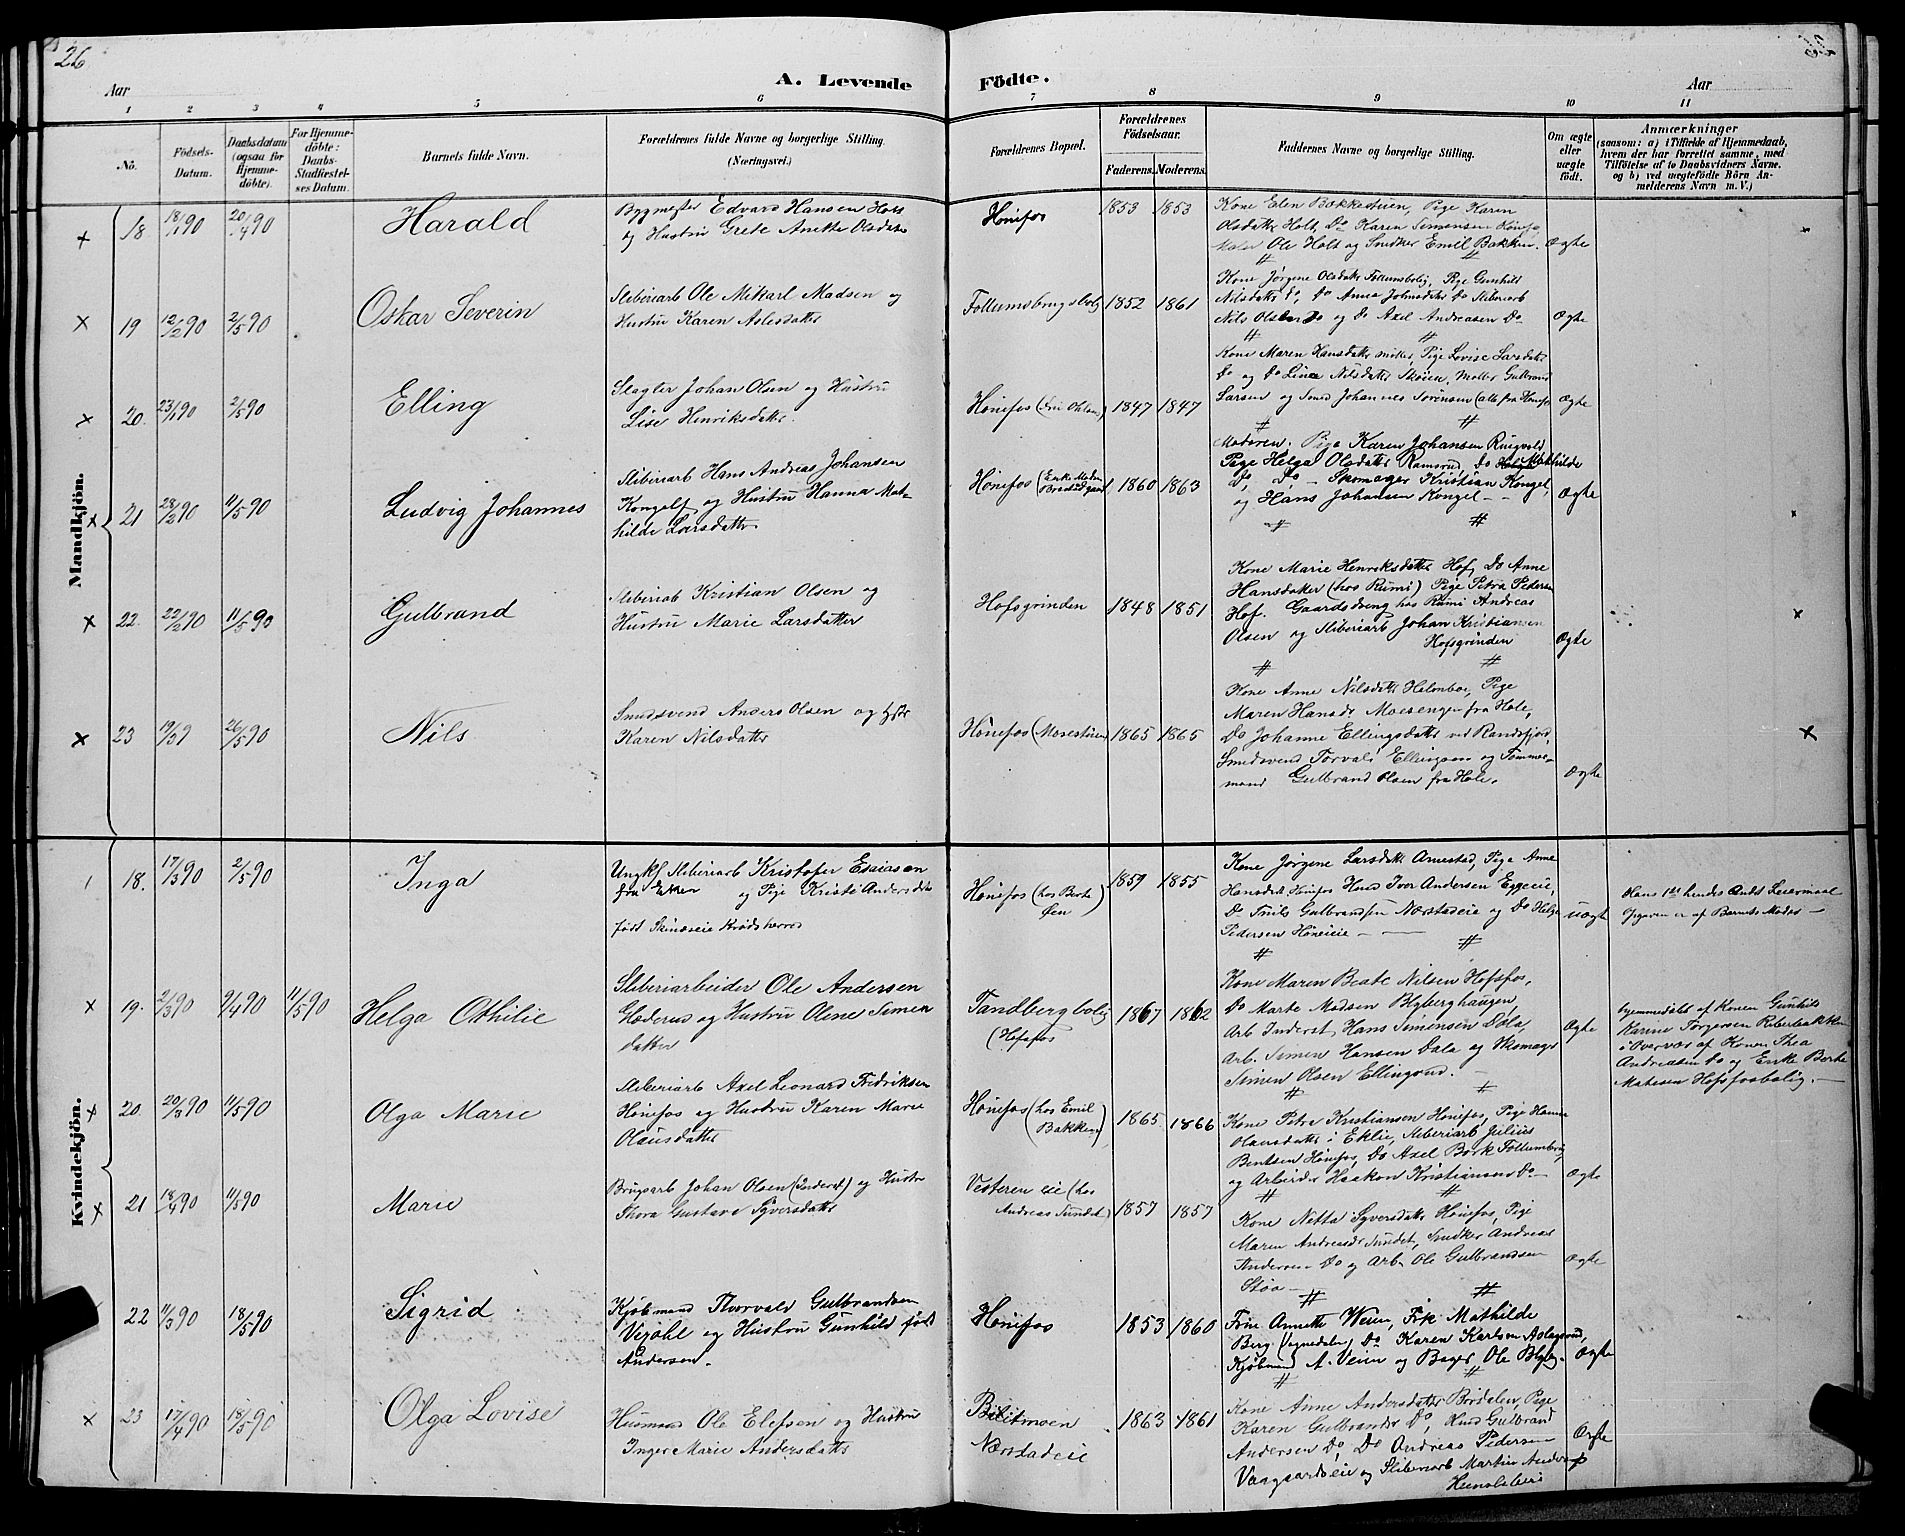 26
A. Levende Födte.
Aar
Aar
1 2 3 4 5 6 7 8 9 10 11
Nô.
Födsels-
Datum.
Daabsdatum
(ogsaa for
Hjemme-
döbte).
For Hjemme-
döbte:
Daabs-
Stadfæstel-
ses Datum.
Barnets fulde Navn.
Forældrenes fulde Navne og borgerlige Stilling.
(Næringsvei.)
Forældrenes Bopæl.
Forældrenes
Födselsaar.
Faderens. Moderens.
Faddernes Navne og borgerlige Stilling.
Om ægte
eller
uægte
födt.
Anmærkninger
(saasom: a) i Tilfælde af Hjemmedaab,
hvem der har forrettet samme, med
Tilföielse af to Daabsvidners Navne,
og b) ved uægtefödte Börn An-
melderens Navn m. V.)
Mandkjön.
18 18/1 90 20/4 90 Harald
Bygmester Edvard Hansen Holt
og Hustru Grete Anette Olsdatter
Hönefos 1853 1853
Kone Elen Bakkestuen, Pige Karen
Olsdatter Holt, Do Karen Simensen Hönefos
Maler Ole Holt og Snedker Emil Bakken. Ægte
19 12/2 90 2/5 90 Oskar Severin
Sliberiarb Ole Mikael Madsen og
Hustru Karen Aslesdatter
Follumsbrugsbolig 1852 1861
Kone Jørgene Olsdatter Follumsbolig, Pige Gunhild
Nilsdatter Do, Do Anna Johnsdatter Do Sliberiarb
Nils Olsen Do og Do Axel Andreasen Do Ægte
20. 23/1 90 2/5 90 Elling
Slagter Johan Olsen og Hustru
Lise Henriksdatter.
Hönefos 1847 1847
Kone Maren Hansdatter Möller, Pige Lovise Larsdatter
Do og Do Lina Nilsdatter Skøien, Møller Gulbrand
Larsen og Smed Johannes Sörensen (alle fra Hönefos Ægte
21 28/2 90 11/5 90 Ludvig Johannes
Sliberiarb Hans Andreas Johansen
Kongelf og Hustru Hanna Mat-
hilde Larsdatter
Hönefos 1860 1863
Moderen. Pige Karen Johansen Ringvold
Pige Helga Olsdatter Ramsrud, Do Mathilde
Do, Do - Skomager Kristian Kongel,
og Hans Johansen Kongel - - Ægte
22. 22/2 90 11/5 90 Gulbrand
Sliberiab Kristian Olsen og
Hustru Marie Larsdatter
Hofsgrinden 1848 1851
Kone Marie Henriksdatter Hof, Do Anne
Hansdatter (hos Rumi) Pige Petra Pedersen
Hof. Gaardsdreng hos Rumi Andreas
Olsen og Sliberiarb Johan Kristiansen
Hofsgrinden Ægte
23 19/3 9 26/5 90 Nils
Smedsvend Anders Olsen og Hstr
Karen Nilsdatter
Hönefos (Mosestuen) 1865 1865
Kone Anne Nilsdatter Helenboe, Pige
Maren Hansdr Moesengen fra Hole,
Do Johanne Ellingsdatter ved Randsfjord,
Smedsvend Torvald Ellingsen og Tømmer-
mand Gulbrand Olsen fra Hole. Ægte
Kvindekjön.
18. 17/3 90 2/5 90 Inga
Ungkf Sliberiarb Kristofer Esaiasen
fra Eker og Pige Kristi Andersdtr
født Skinæseie Krødsherred
Hönefos (hos Berte
Øen) 1859 1855
Kone Jørgene Larsdatter Arnestad, Pige Anne
Hansdatter Hönefos Husm Iver Andersen Eggeeie,
Do Truls Gulbrandsen Nærstadeie og Do Helge
Pedersen Høneieie uægte
Hans 1ste hendes Andet Leiermaal
Opgaven er af Barnets Moder -
19. 2/3 90 9/4 90 11/5 90 Helga Othilie
Sliberiarbeider Ole Andersen
Glæderud og Hustru Olene Simen
datter
Tandbergbolig
(Hofsfos 1867 1862
Kone Maren Beate Nilsen Hofsfos,
Do Marte Madsen Blyberghaugen,
Arb Inderst Hans Simensen Dala,
Arb. Simen Hansen Dala og Skomager
Simen Olsen Ellingsrud. Ægte
hjemmedöbt af Konen Gunhild
Karine Torgersen Riberbakken
i Overvær af Konen Thea
Andreasen Do og Enke Berthe
Madsen Hofsfosbolig. -
20. 20/3 90 11/5 90 Olga Marie
Sliberiarb Axel Leonard Fredriksen
Hönefos og Hustru Karen Marie
Olausdatter
Hönefos (hos Emil
Bakken) 1865 1866
Kone Petra Kristiansen Hönefos, Pige Hanna
Olausdatter i Eklie, Sliberiarb Julius
Bentsen Hönefos, Do Axel Bork Follumbrug,
og Arbeider Haakon Kristiansen Do - Ægte
21 18/4 90 11/5 90 Marie
Brugsarb Johan Olsen (Inderst) og Hustru
Thora Gustava Syversdatter
Vesteren eie (hos
Andreas Sundet) 1857 1857
Kone Netta Syversdatter Hönefos, Pige
Maren Andreasdr Sundet, Snedker Andreas
Andersen Do og Arb. Ole Gulbrandsen
Stöa - Ægte
22 11/3 90 18/5 90 Sigrid
Kjøbmand Thorvald Gulbrandsen
Vejdhl og Hustru Gunhild født
Andersen.
Hönefos 1853 1860
Frue Annette Weien, Frk Mathilde
Berg (Sognedalen) Do, Karen Karlsen Aslagsrud,
Kjøbmand A. Veien og Bager Ole Blyberg. Ægte
23 17/4 90 18/5 90 Olga Lovise
Husmand Ole Elefsen og Hustru
Inger Marie Andersdatter
Bilitmoen
Nærstadeie 1863 1861
Kone Anne Andersdatter Bördalen, Pige
Karen Gulbrandsdr Do, Husm Gulbrand
Andersen Do, Do Andreas Pedersen
Vaagaardseie og Sliberiarb Martin Anders
Hensleleiri Ægte